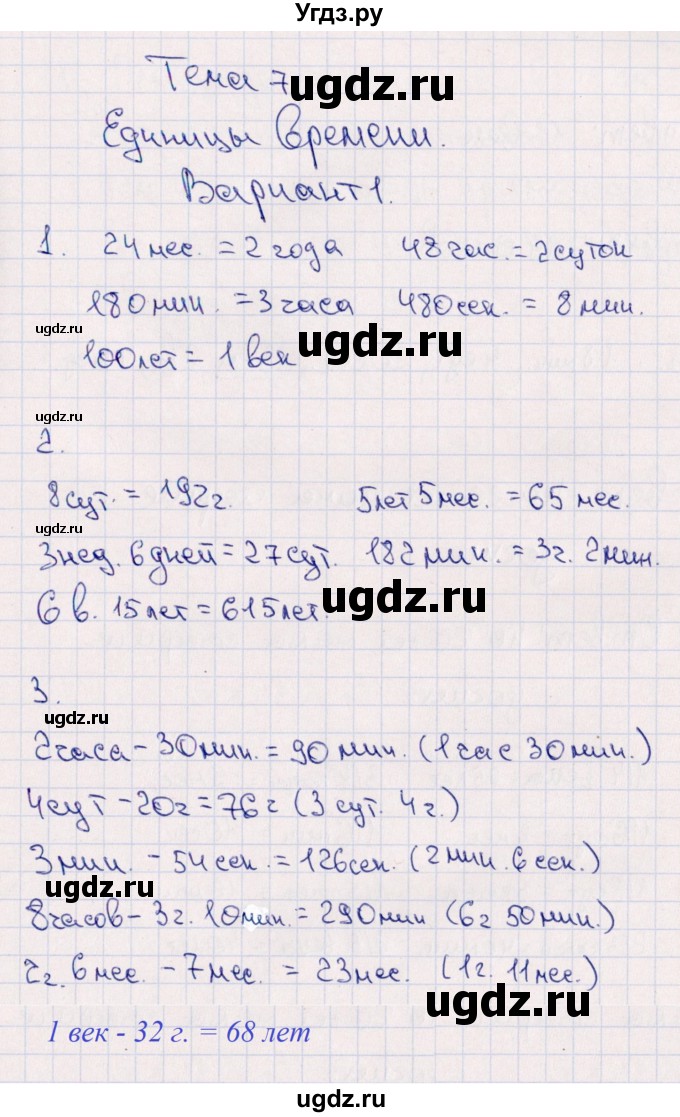 Угдз.ру
Тема 7
ugdz.ru
Единицы времени.
Вариант 1.
1. 24 мес. = 2 года 48 час. = 2 суток
180 мин. = 3 часа 480 сек. = 8 мин.
ugdz.ru
ugdz.ru
100 лет = 1 век
ugdz.ru
2.
8 сут. = 192 г. 5 лет 5 мес. = 65 мес.
ugdz.ru
3 нед. 6 дней = 27 сут. 182 мин. = 3 г. 2 мин.
ugdz.ru
6 в. 15 лет = 615 лет.
3.
ugdz.ru
2 часа - 30 мин. = 90 мин. (1 час 30 мин.)
4 сут - 20 г = 76 г (3 сут. 4 г.)
3 мин. - 54 сек. = 126 сек. (2 мин. 6 сек.)
ugdz.ru
8 часов - 3 г. 10 мин. = 290 мин (6 г 50 мин.)
2 г. 6 мес. - 7 мес. = 23 мес. (1 г. 11 мес.)
ugdz.ru
1 век - 32 г. = 68 лет
ugdz.ru